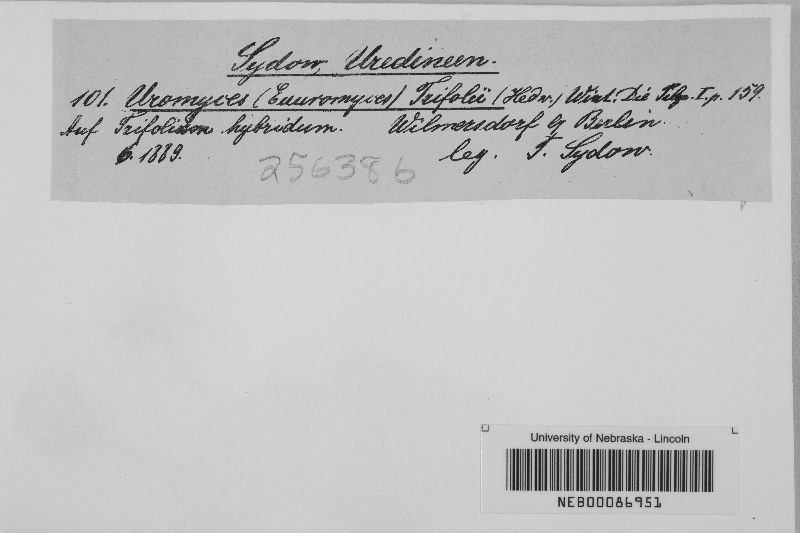 Sydow, Uredineen.
101. Uromyces (Euuromyces) Trifolii (Hedw.) Wint. Die Pilze I. p. 159.
Auf Trifolium hybridum. Wilmersdorf b/ Berlin.
6. 1889. leg. P. Sydow.
256386
University of Nebraska - Lincoln
NEB00086951